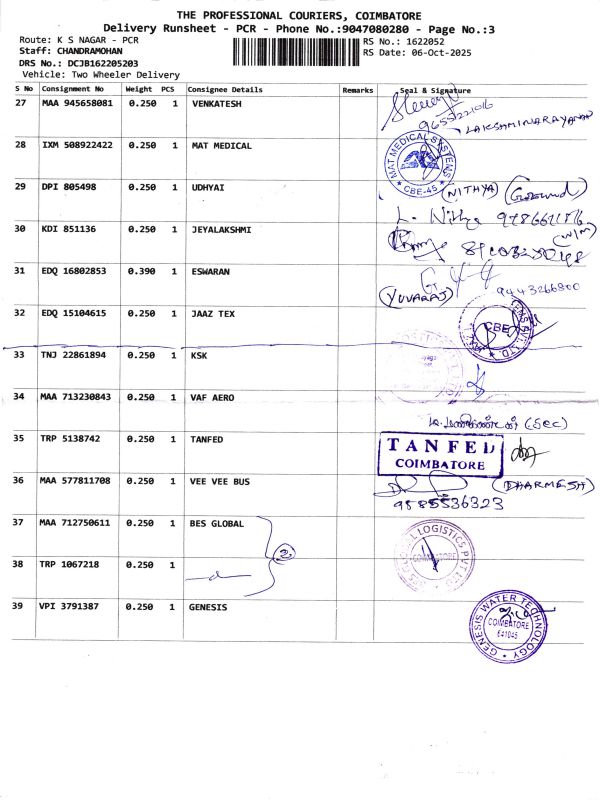 THE PROFESSIONAL COURIERS, COIMBATORE
Delivery Runsheet - PCR - Phone No.:9047080280 - Page No.:3
Route: K S NAGAR - PCR RS No.: 1622052
Staff: CHANDRAMOHAN RS Date: 06-Oct-2025
DRS No.: DCJB162205203
Vehicle: Two Wheeler Delivery
S No Consignment No Weight PCS Consignee Details Remarks Seal & Signature
27 MAA 945658081 0.250 1 VENKATESH
9655221016
LAKSHMINARAYANAN
28 IXM 508922422 0.250 1 MAT MEDICAL
MAT MEDICAL SYSTEMS
CBE-45
29 DPI 805498 0.250 1 UDHYAI
(NITHYA)
L. Nithya
30 KDI 851136 0.250 1 JEYALAKSHMI
(W/M)
31 EDQ 16802853 0.390 1 ESWARAN
(YUVARAJ) 9443266800
32 EDQ 15104615 0.250 1 JAAZ TEX
CBE
33 TNJ 22861894 0.250 1 KSK
34 MAA 713230843 0.250 1 VAF AERO
(Sec)
35 TRP 5138742 0.250 1 TANFED
TANFED
COIMBATORE
36 MAA 577811708 0.250 1 VEE VEE BUS
(DHARMESH)
9885536323
37 MAA 712750611 0.250 1 BES GLOBAL
BES GLOBAL LOGISTICS PVT LTD
COIMBATORE
2
38 TRP 1067218 0.250 1
39 VPI 3791387 0.250 1 GENESIS
GENESIS WATER TECHNOLOGY
COIMBATORE
641045